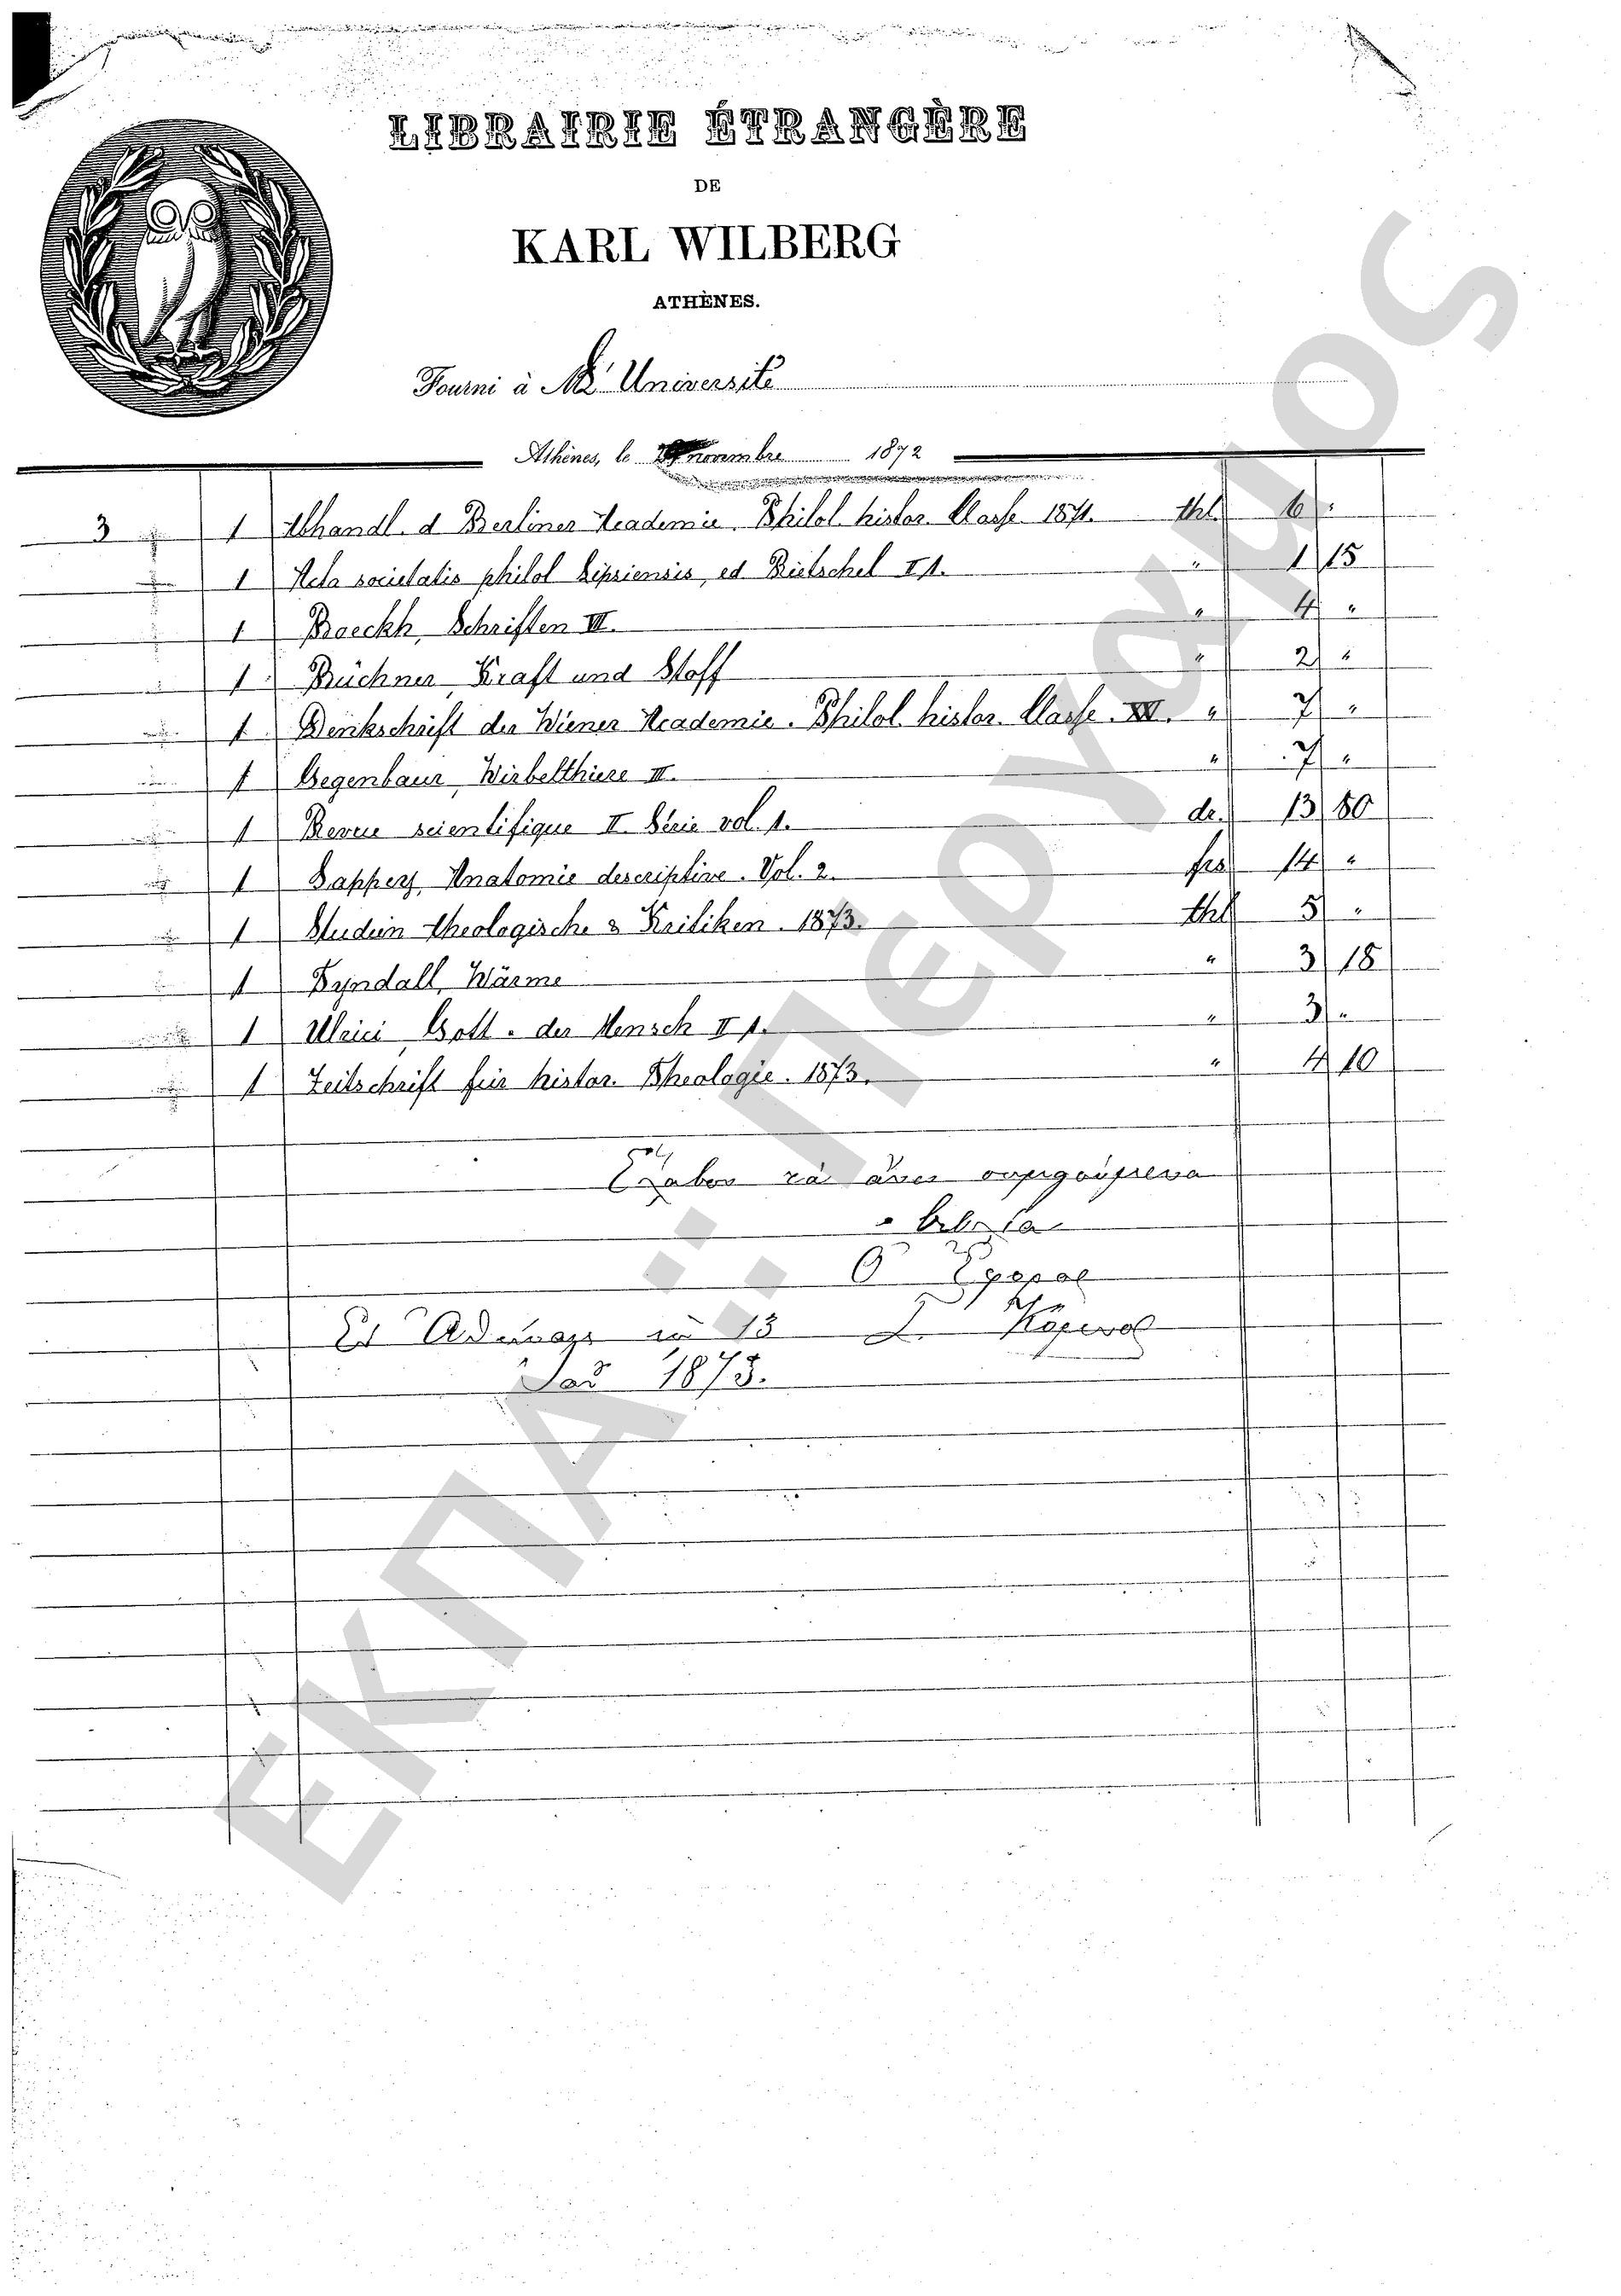 LIBRAIRIE ÉTRANGÈRE
DE
KARL WILBERG
ATHÈNES.
Fourni à l'Université
Athènes, le novembre 1872
3 1 Abhandl. d Berliner Academie. Philol. histor. Classe 1871. thl. 6 "
1 Acta societatis philol Lipsiensis, ed Ritschel II 1. " 1 15
1 Boeckh, Schriften VI. " 4 "
1 Büchner, Kraft und Stoff " 2 "
1 Denkschrift der Wiener Academie. Philol. histor. Classe. " 7 "
1 Gegenbaur, Wirbelthiere III. " 7 "
1 Revue scientifique II Série vol. 1. dr. 13 80
1 Sappey, Anatomie descriptive. Vol. 2. frs 14 "
1 Studien theologische & Kritiken. 1873. thl 5 "
1 Tyndall, Wärme " 3 18
1 Ulrici, Gott u. der Mensch II 1. " 3 "
1 Zeitschrift für histor. Theologie. 1873. " 4 10
Ἔλαβον τὰ ἄνω
βιβλία
Ὁ Ἔφορος
Ἐν Ἀθήναις τῇ 13
1873.
ΕΚΠΑ: Πέργαμος